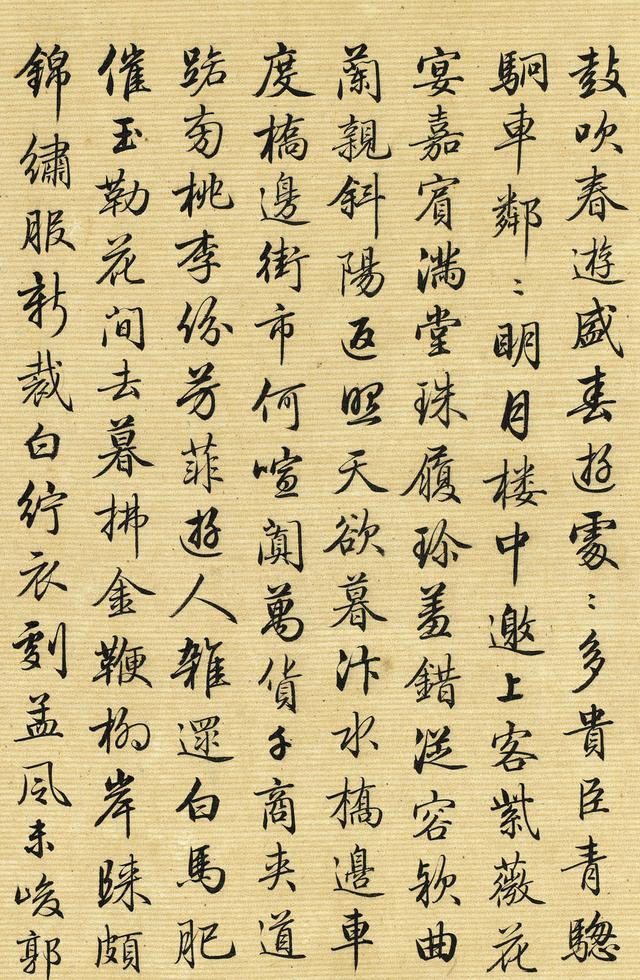 鼓吹春遊盛春遊處〻多貴臣青驄
駉車鄰〻明月楼中邀上客紫薇花
宴嘉賓滿堂珠履珍羞錯從容欵曲
蘭親斜陽返照天欲暮汴水橋邊車
度橋邊街市何喧闐萬貨千商夾道
路旁桃李份芳菲遊人雜還白馬肥
催玉勒花间去暮拂金鞭柳岸睞頗
錦繡服新裁白紵衣劇孟風未峻郭